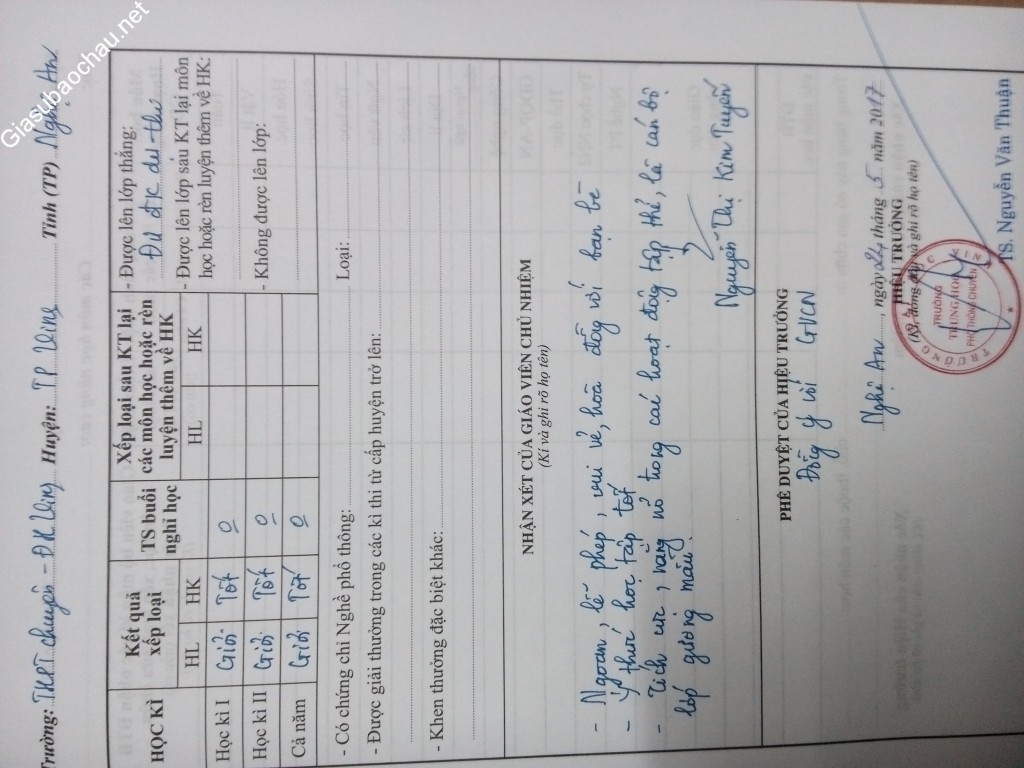 Giasubaochau.net
Trường: THPT chuyên - ĐH Vinh Huyện: TP Vinh Tỉnh (TP) Nghệ An
HỌC KÌ
Kết quả xếp loại
TS buổi nghỉ học
Xếp loại sau KT lại các môn học hoặc rèn luyện thêm về HK
HL HK HL HK
Học kì I Giỏi Tốt 0
Học kì II Giỏi Tốt 0
Cả năm Giỏi Tốt 0
- Được lên lớp thẳng:
Đủ đk dự thi
- Được lên lớp sau KT lại môn
học hoặc rèn luyện thêm về HK:
- Không được lên lớp:
- Có chứng chỉ Nghề phổ thông: Loại:
- Được giải thưởng trong các kì thi từ cấp huyện trở lên:
- Khen thưởng đặc biệt khác:
NHẬN XÉT CỦA GIÁO VIÊN CHỦ NHIỆM
(Kí và ghi rõ họ tên)
- Ngoan, lễ phép, vui vẻ, hoà đồng với bạn bè
- Ý thức học tập tốt
- Tích cực, năng nổ trong cái hoạt động tập thể, là cán bộ
lớp gương mẫu.
Nguyễn Thị Kim Tuyến
PHÊ DUYỆT CỦA HIỆU TRƯỞNG
Đồng ý với GVCN
Nghệ An, ngày 24 tháng 5 năm 2017
HIỆU TRƯỞNG
(Ký, đóng dấu và ghi rõ họ tên)
TRƯỜNG
PHỔ THÔNG CHUYÊN
TS. Nguyễn Văn Thuận